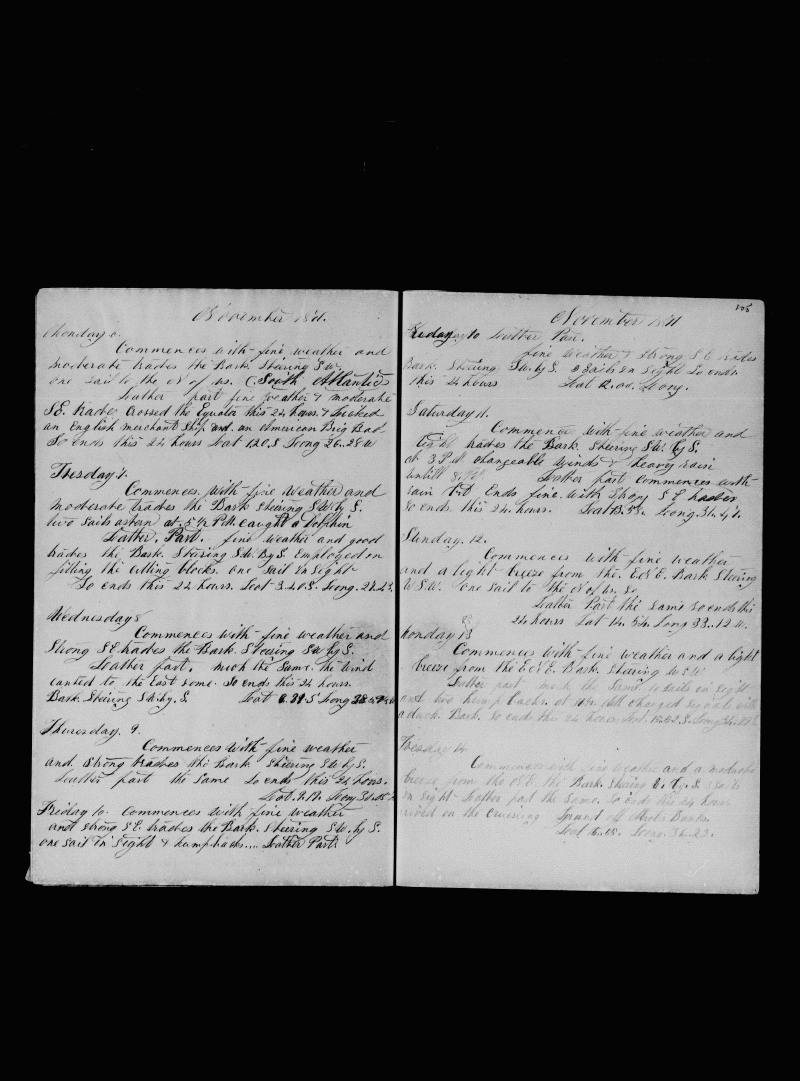 November 1871.
Monday 6.
Commences with fine weather and
moderate trades the Bark Steering SW.
one sail to the N of us. (South Atlantic)
Leather part fine weather & moderate
SE. trades Crossed the Equator this 24 hours &
an English merchant Ship and an American Brig
So ends this 24 hours Lat 1.20.S Loong 26..28 W
Tuesday 7.
Commences with fine weather and
moderate trades the Bark Steering SW. by S.
two sails astern at 5 1/2 P.M. caught a
Leather. Part. fine weather and good
trades the Bark. Steering S.W. By S. Employed in
fitting the cutting blocks. one sail in sight
So ends this 24 hours. Lat 3.40.S. Loong.
Wednesday 8
Commences with fine weather and
Strong SE. trades the Bark. Steering SW by S.
Leather part, much the Same. the wind
canted to the East some. So ends this 24 hours.
Bark. Steering SW. by. S. Lat 6.39.S Loong
Thursday. 9.
Commences with fine weather
and strong trades the Bark Steering SW by S.
Leather part the same So ends this 24 hours.
Lat. Loong
Friday 10. Commences with fine weather
and strong SE. trades the Bark. Steering S.W. by S.
one sail in sight & humpbacks.... Leather Part.
105
November 1871
Friday 10 Leather Part.
fine weather & strong S E trades
Bark. Steering SW. by S. 3 Sails in Sight So ends
this 24 hours Lat 12.00. Loong.
Saturday 11.
Commences with fine weather and
light trades the Bark. Steering S.W. by S.
at 3 P.M. changeable winds & heavy rain
untill Leather part Commences with
rain but Ends fine. with Strong S E trades
So ends this 24 hours. Lat 13.53. Loong. 31.41.
Sunday. 12.
Commences with fine weather
and a light breeze from the E.N.E. Bark Steering
W.S.W. one sail to the N of us. So
Leather Part the same So ends this
24 hours Lat 14.54 Long 33..12. W.
Monday 13
Commences with fine weather and a light
breeze from the E.N.E. Bark. Steering W S W
Leather part much the Same. sails in Sight
and two hump backs. at A.M. changed Signals with
a duck. Bark. So ends this 24 hours Lat. 15.52.S. Loong
Tuesday 14
Commences with fine weather and a moderate
breeze from the N.E. the Bark. Steering by. S. 2 sails
in sight Leather part the Same. So ends this 24 hours
arrived on the Cruesing Ground off Banks.
Lat 16.15. Loong. 36.23.